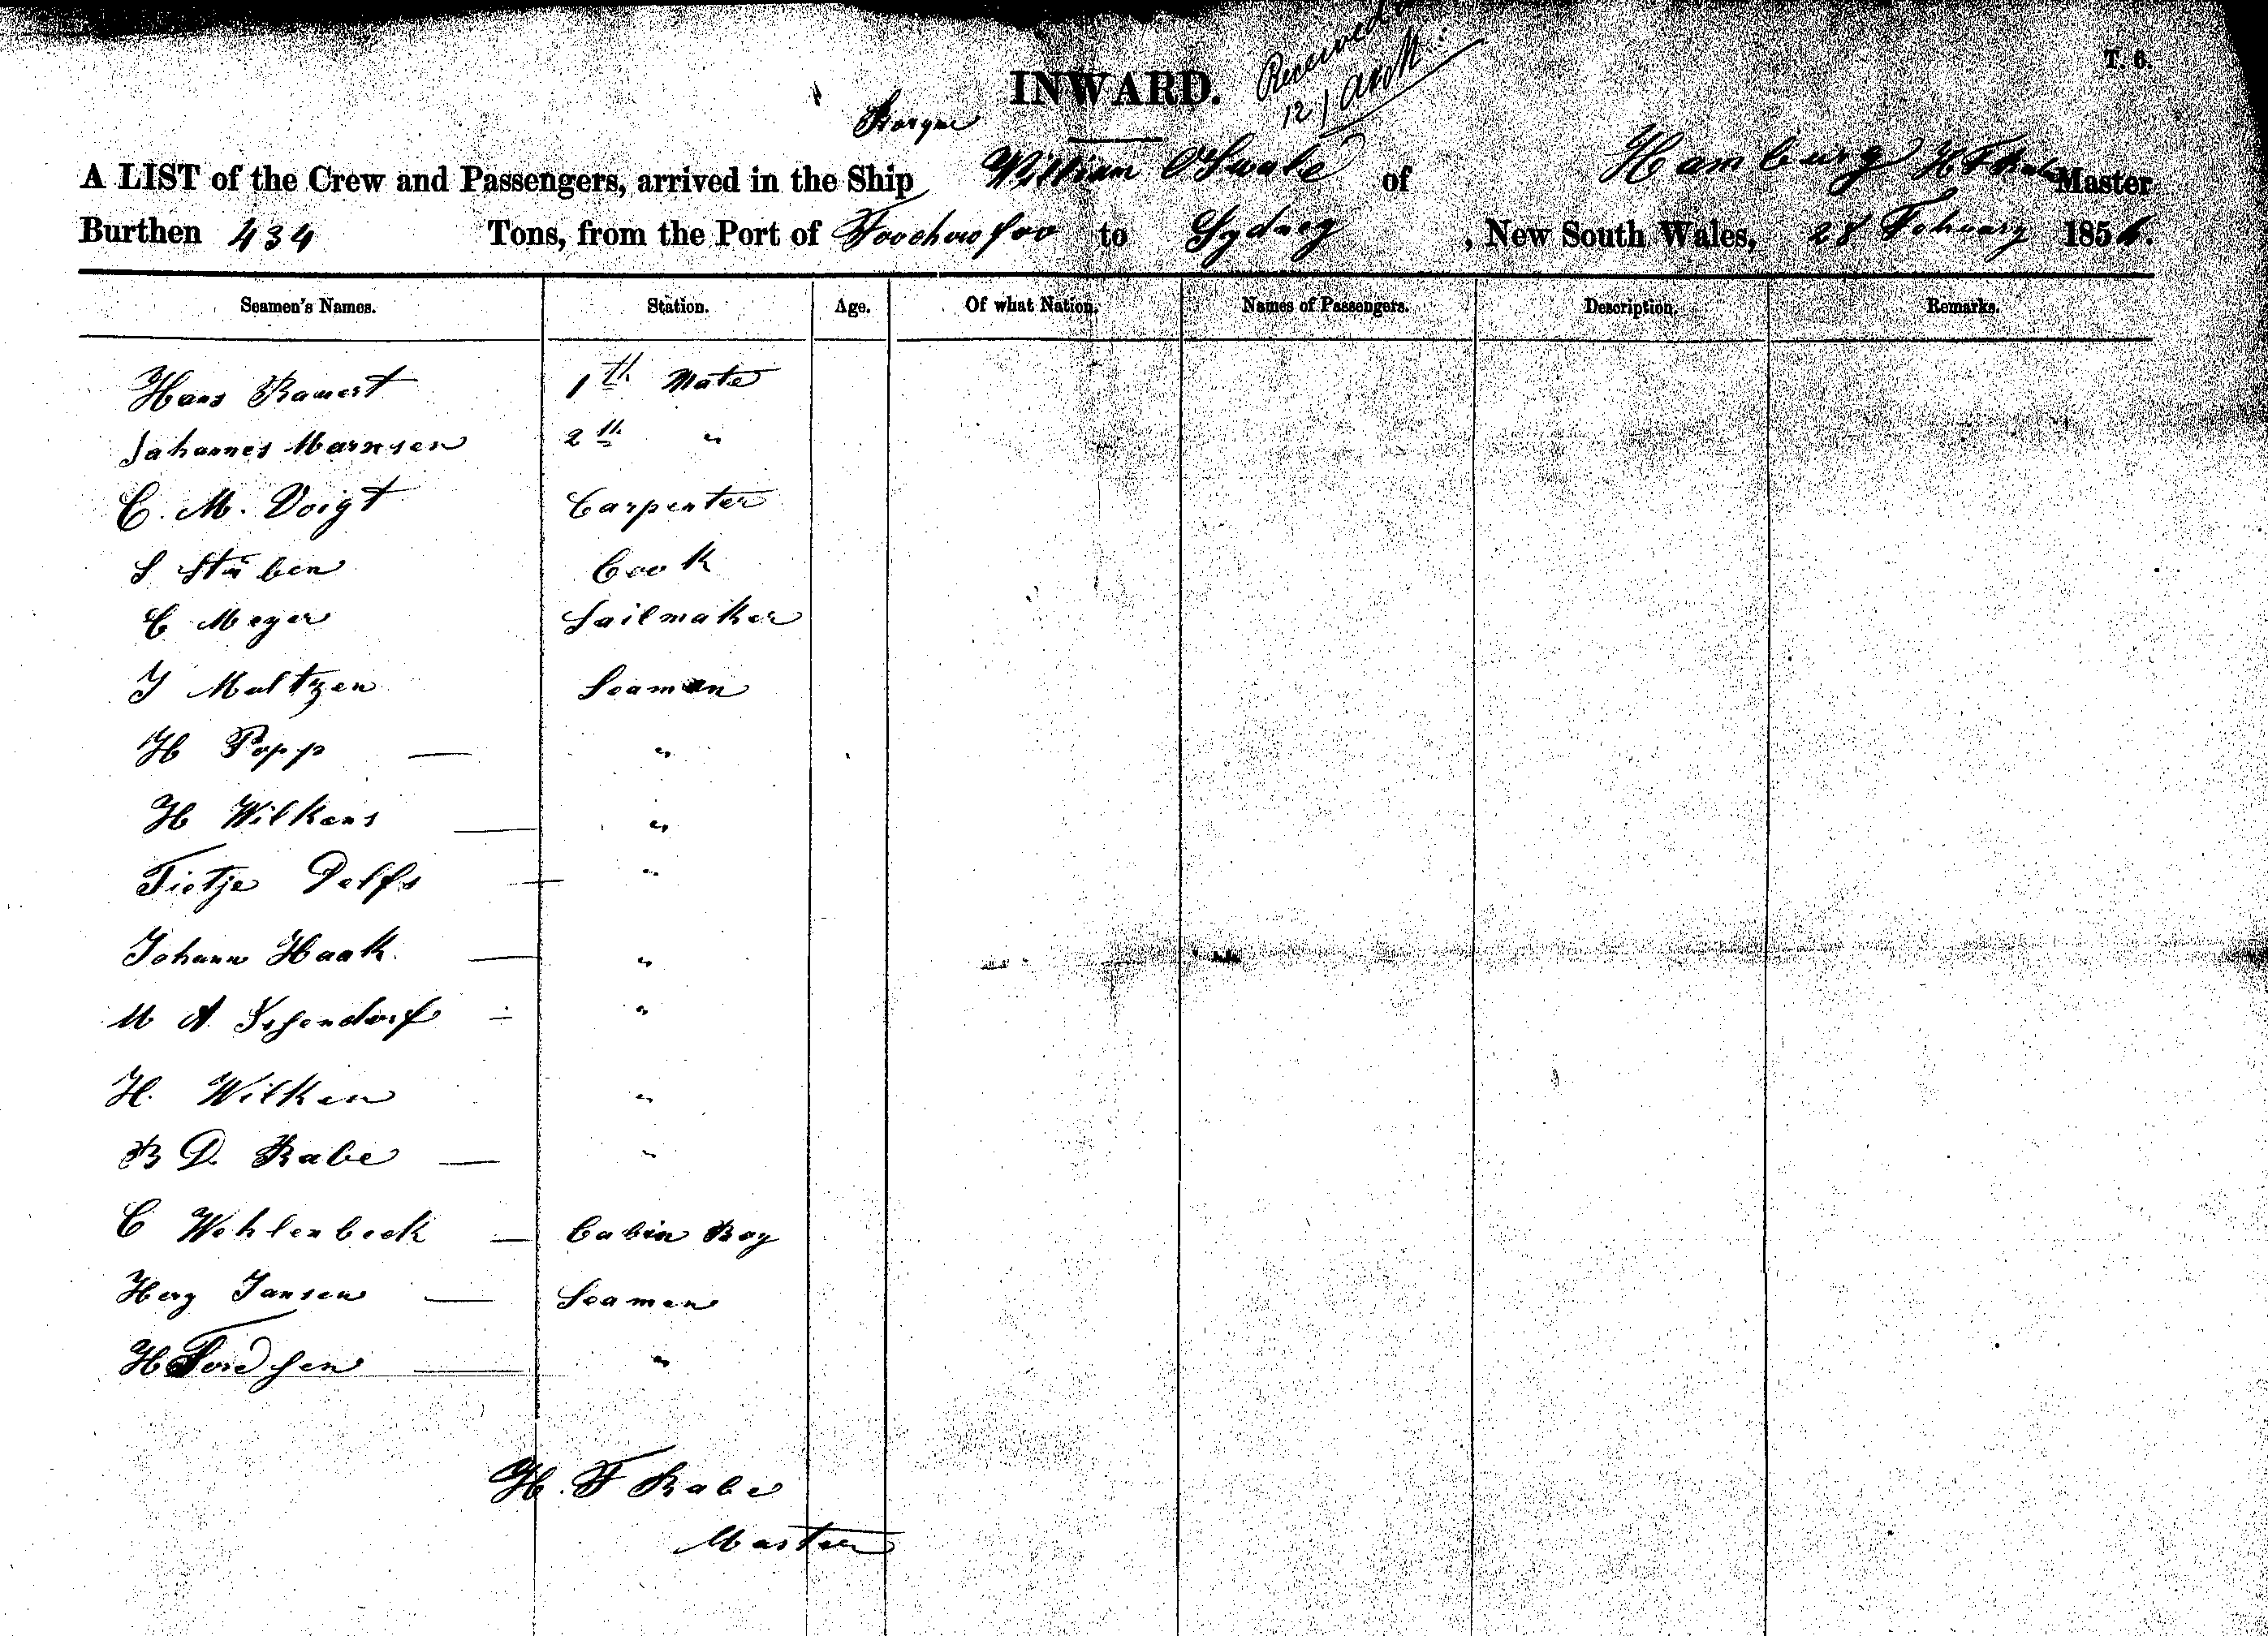 T. 6.
INWARD.
Received
12/
Barque
A LIST of the Crew and Passengers, arrived in the Ship William OSwald of Hamburg H F Rabe Master
Burthen 434 Tons, from the Port of Foochowfoo to Sydney, New South Wales, 28 February 1856.
Seamen's Names. Station. Age. Of what Nation. Names of Passengers. Description. Remarks.
Hans Bauert 1th Mate
Johannes Marxsen 2th "
C. M. Voigt Carpenter
S Stüben Cook
C Meyer Sailmaker
J Maltzen Seaman
H Popp — "
H Wilkens — "
Tietje Delfs — "
Johann Haak — "
M A — "
H. Wilken "
B D. Rabe — "
C Wohlenbeck — Cabin Boy
Jansen — Seamen
H — "
H. F Rabe
Master